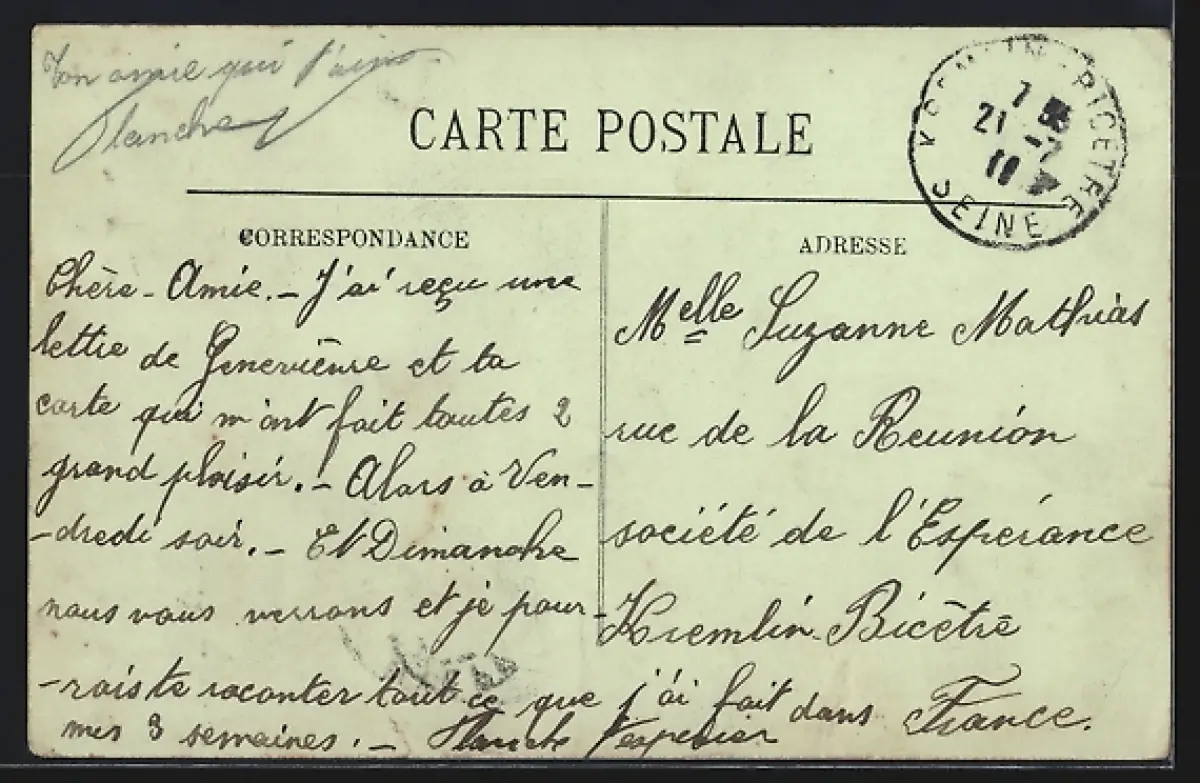 Ton amie qui t'aime
Blanche
CARTE POSTALE
KREMLIN-BICETRE
7
21 -7
SEINE
CORRESPONDANCE
ADRESSE
Chère - Amie. - J'ai reçu une
lettre de Geneviève et ta
carte qui m'ont fait toutes 2
grand plaisir. - Alors à Ven-
-dredi soir. - Et Dimanche
nous vous verrons et je pour-
-rais te raconter tout ce que j'ai fait dans
mes 3 semaines. - Blanche
Melle Suzanne Mathias
rue de la Reunion
société de l'Espérance
Kremlin-Bicêtre
France.